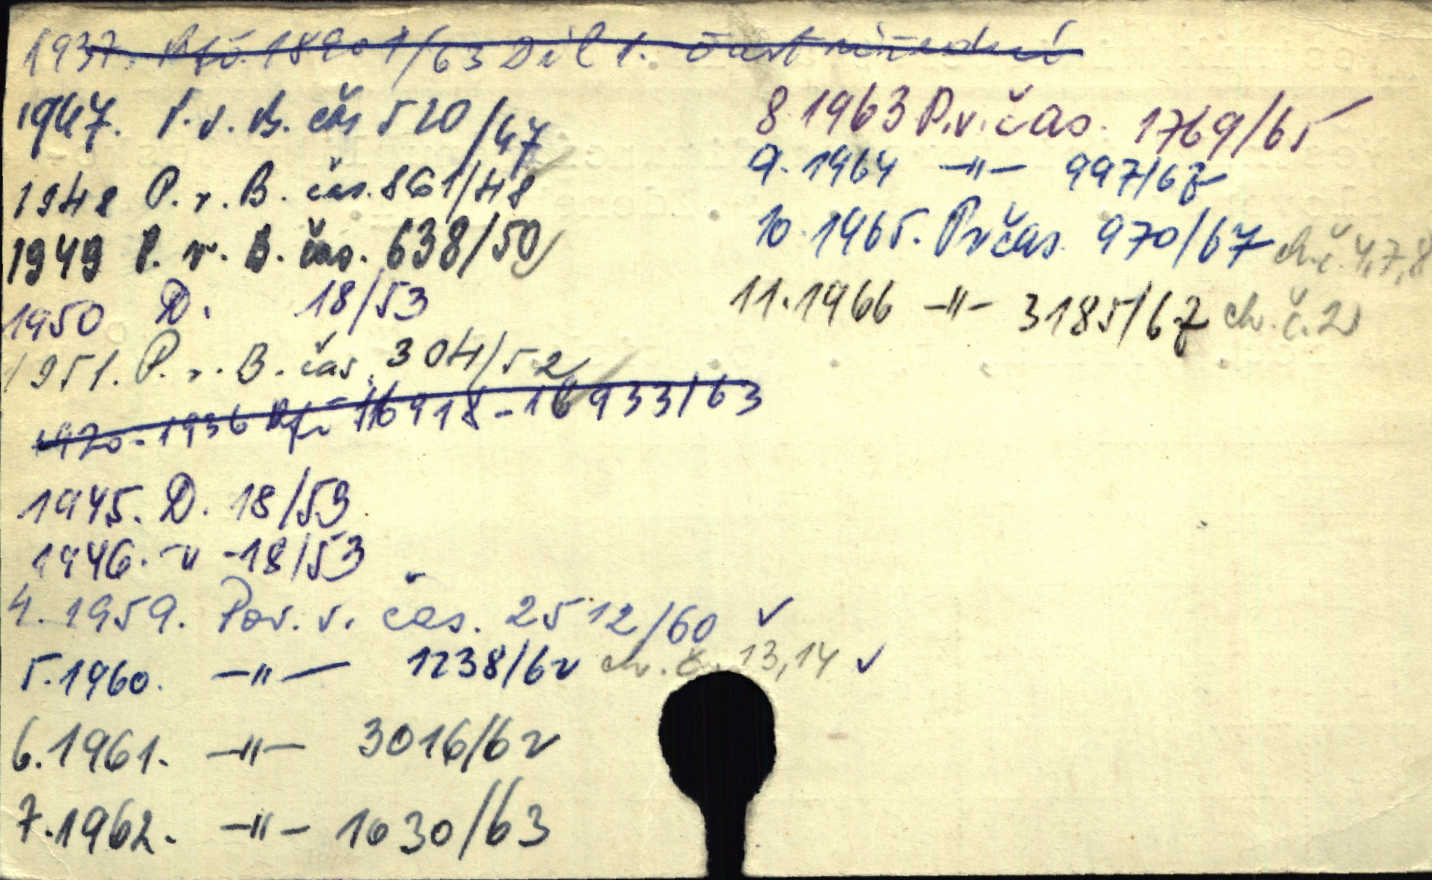 1937. Př. 18901/63 Díl 1. část úřední
1947. P. v. B. čas 520/47
1948 P. v. B. čas. 861/48
1949 P. v. B. čas. 638/50
1950 D. 18/53
1951. P. v. B. čas. 304/52
1920-1936 Př 16918-16933/63
1945. D. 18/53
1946. -"- 18/53
4. 1959. Pov. v. čas. 2512/60 ✓
5. 1960. -"- 1238/62 ch. č. 13,14 ✓
6. 1961. -"- 3016/62
7. 1962. -"- 1030/63
8 1963 P.v. čas. 1769/65
9. 1964 -"- 997/67
10. 1965. Pv čas. 970/67 ch. č. 4,7,8
11. 1966 -"- 3185/67 ch. č. 2